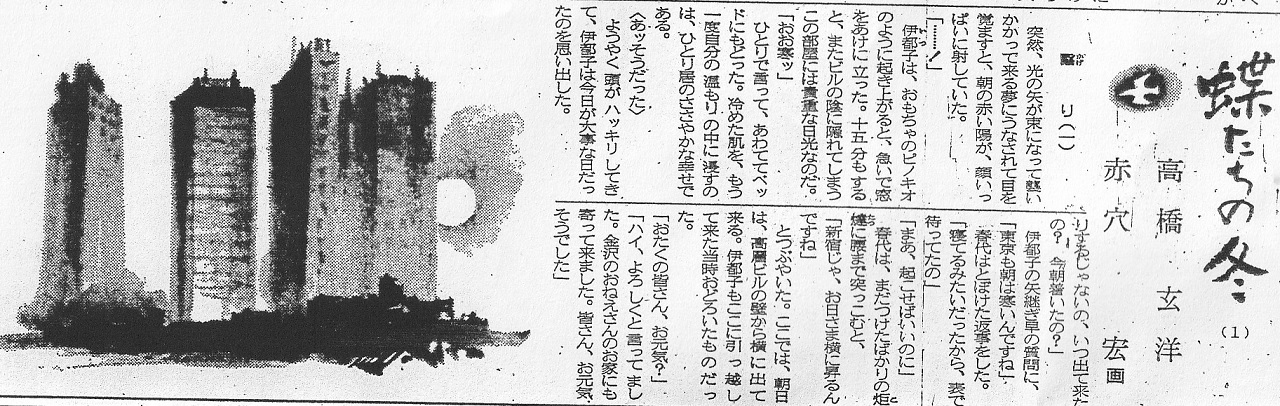 蝶たちの冬
(1)
高橋玄洋
赤穴宏画
り(一)
突然、光の矢が束になって襲い
かかって来る夢にうなされて目を
覚ますと、朝の赤い陽が、顔いっ
ぱいに射していた。
「……！」
伊都子は、おもちゃのピノキオ
のように起き上がると、急いで窓
をあけに立った。十五分もする
と、またビルの陰に隠れてしまう
この部屋には貴重な日光なのだ。
「おお寒ッ」
ひとりで言って、あわててベッ
ドにもどった。冷めた肌を、もう
一度自分の温もりの中に浸すの
は、ひとり居のささやかな幸せで
ある。
〈あッそうだった〉
ようやく頭がハッキリしてき
て、伊都子は今日が大事な日だっ
たのを思い出した。
じゃないの、いつ出て来た
の？　今朝着いたの？」
伊都子の矢継ぎ早の質問に、
「東京も朝は寒いんですね」
春代はとぼけた返事をした。
「寝てるみたいだったから、表で
待ってたの」
「まあ、起こせばいいのに」
春代は、まだつけたばかりの炬
燵に腰まで突っこむと、
「新宿じゃ、お日さま横に昇るん
ですね」
とつぶやいた。ここでは、朝日
は、高層ビルの壁から横に出て
来る。伊都子もここに引っ越し
て来た当時おどろいたものだっ
た。
「おたくの皆さん、お元気？」
「ハイ、よろしくと言ってまし
た。金沢のおねえさんのお家にも
寄って来ました。皆さん、お元気
そうでした」